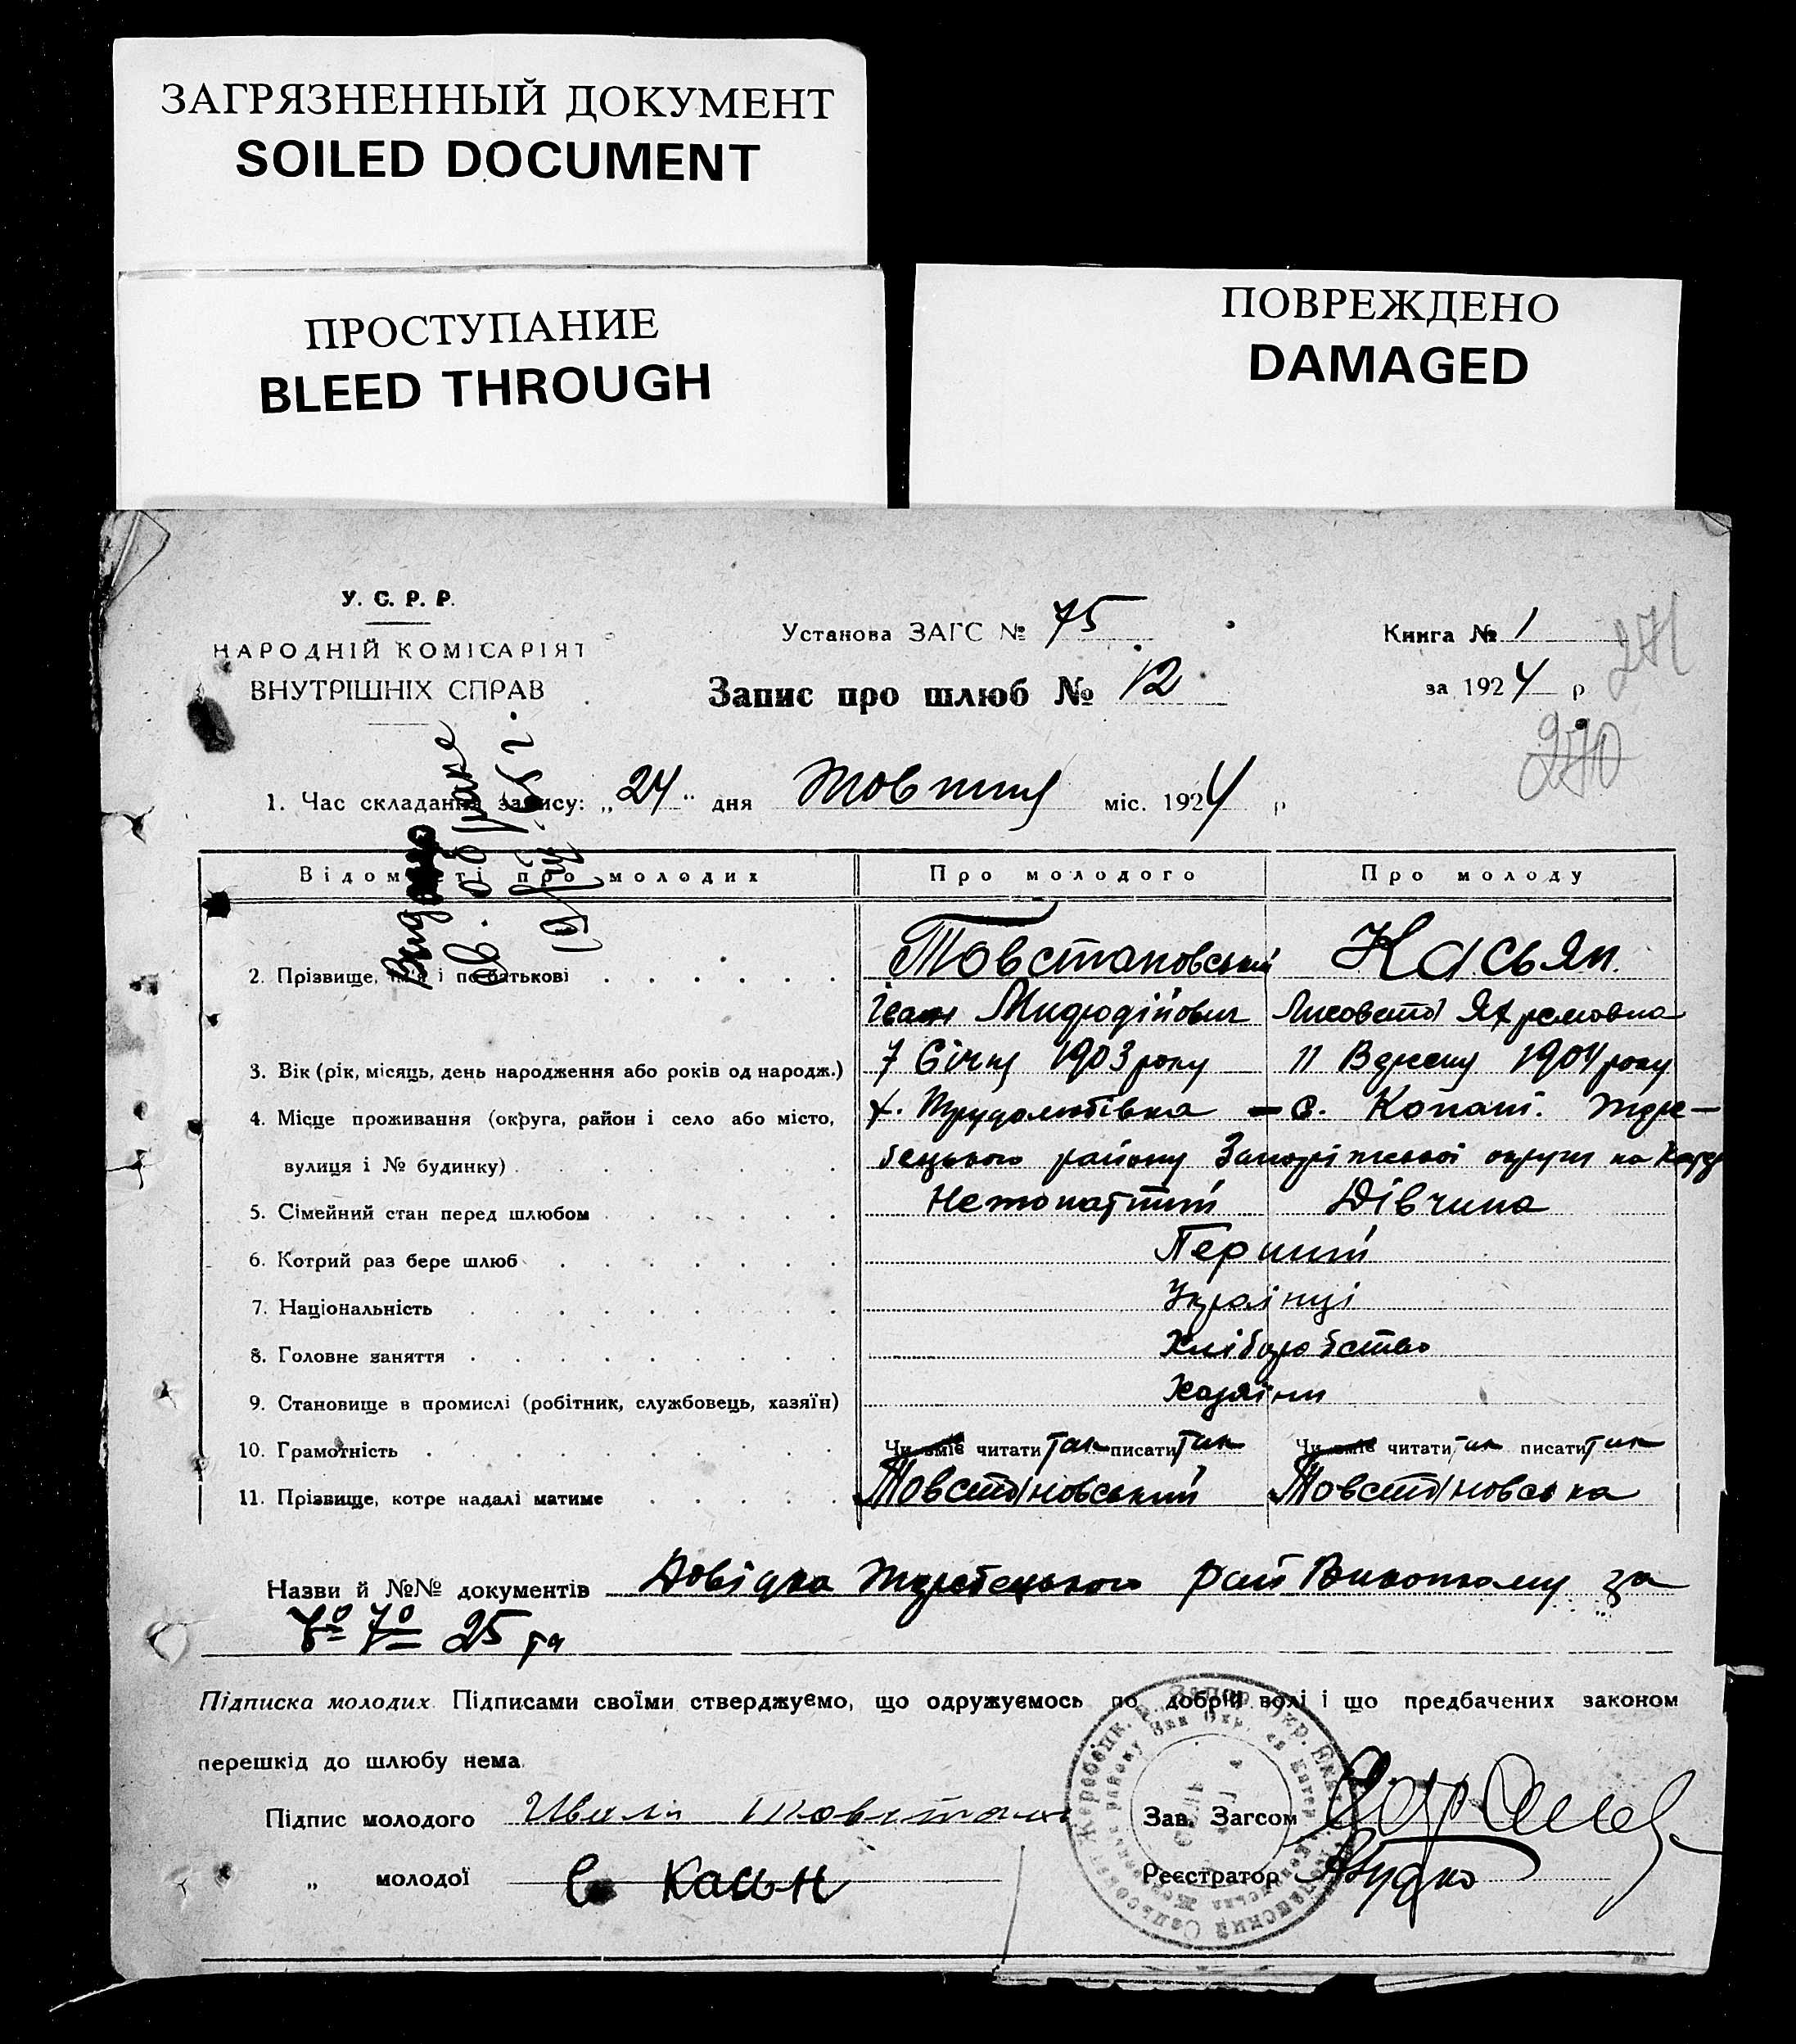 ЗАГРЯЗНЕННЫЙ ДОКУМЕНТ
SOILED DOCUMENT
ПРОСТУПАНИЕ
BLEED THROUGH
ПОВРЕЖДЕНО
DAMAGED
У. С. Р. Р.
НАРОДНІЙ КОМІСАРІЯТ
ВНУТРІШНІХ СПРАВ
Установа ЗАГС № 75
Запис про шлюб № 12
Книга № 1
за 1924 р
271
270
1. Час складання запису: „24" дня Жовтня міс. 1924 р
Відомості про молодих Про молодого Про молоду
2. Прізвище, ім'я і по батькові Товстановський Касьян.
Іван Лисовета
3. Вік (рік, місяць, день народження або років од народж.) 7 Січня 1903 року 11 1904 року
4. Місце проживання (округа, район і село або місто, х. Трудолюбівка — с. Копані. Жере—
вулиця і № будинку) бецького району Запоріжської округи на
5. Сімейний стан перед шлюбом Нежонатий Дівчина
6. Котрий раз бере шлюб Перший
7. Національність Українці
8. Головне заняття Хліборобство
9. Становище в промислі (робітник, службовець, хазяїн) Хазяіни
10. Грамотність Чи вміє читати так писати так Чи вміє читати так писати так
11. Прізвище, котре надалі матиме Товстановський Товстановська
Назви й №№ документів Довідка Жеребецького рай Виконкому за
25
Підписка молодих. Підписами своїми стверджуємо, що одружуємось по добрій волі і що предбачених законом
перешкід до шлюбу нема.
Підпис молодого Иван Товстан Зав. Загсом
„ молодої Є Касьян Реєстратор